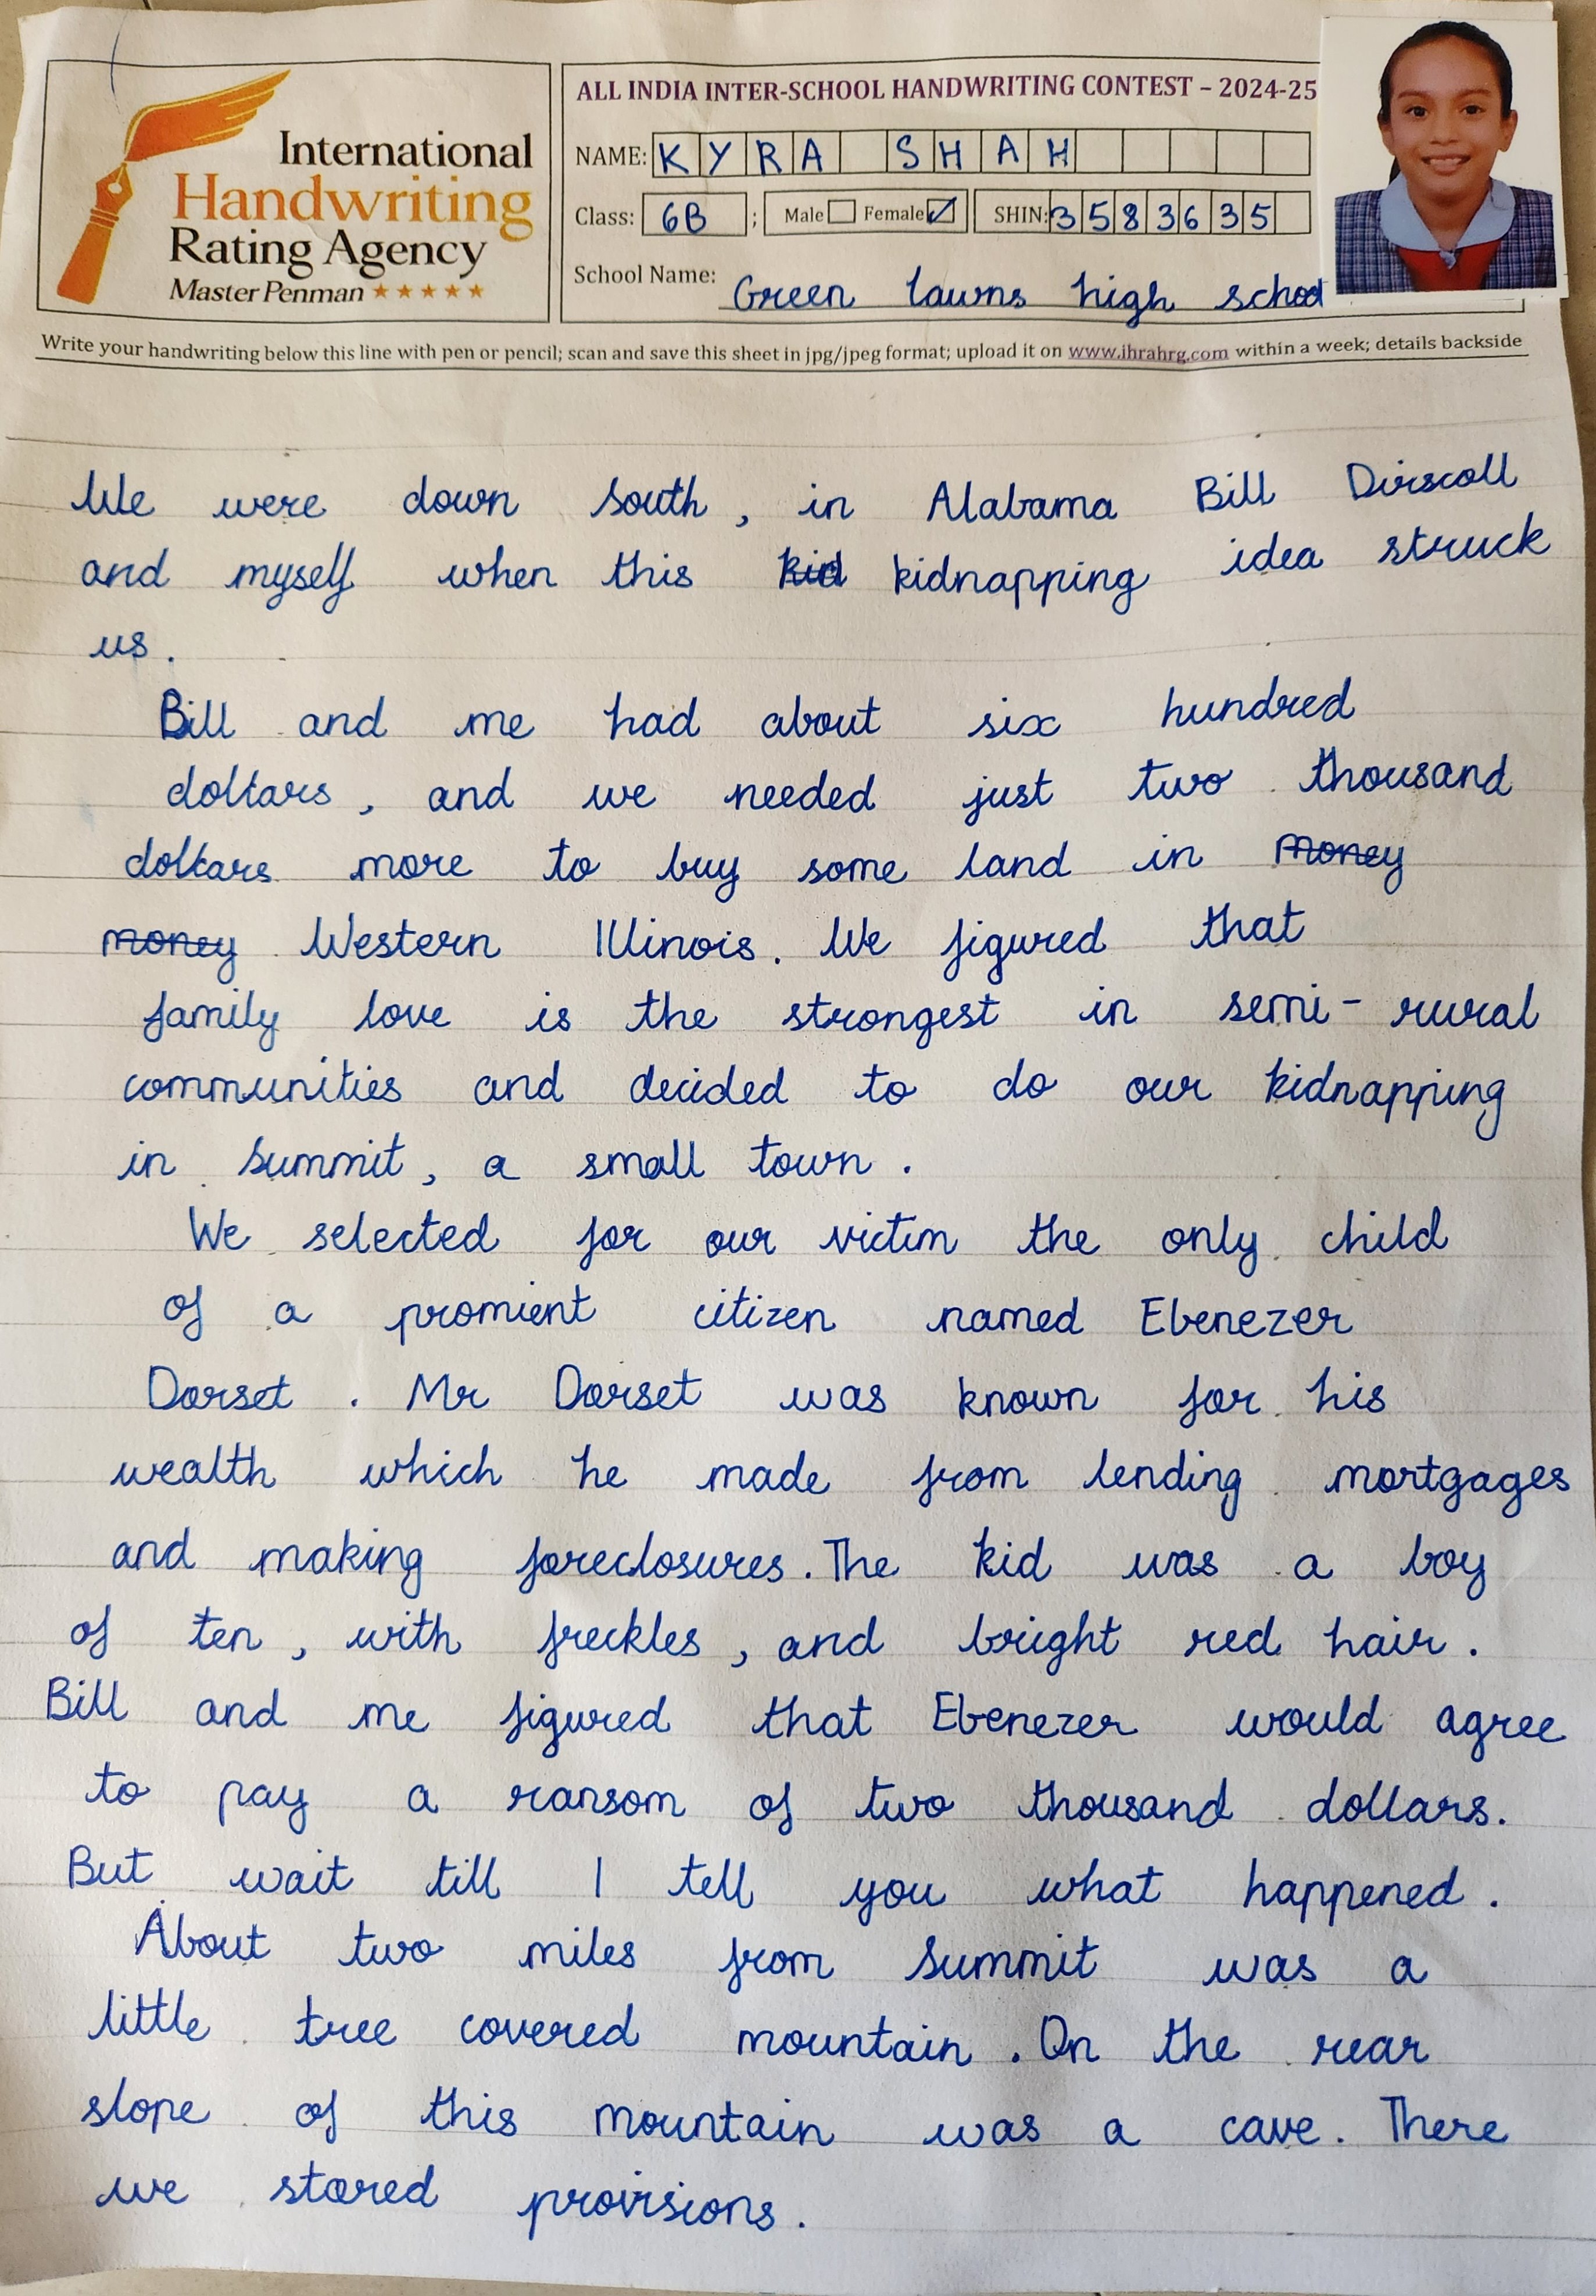 International
Handwriting
Rating Agency
Master Penman ★★★★★
ALL INDIA INTER-SCHOOL HANDWRITING CONTEST – 2024-25
NAME: KYRA SHAH
Class: 6B ; Male ☐ Female ☑ SHIN: 3583635
School Name: Green lawns high school
Write your handwriting below this line with pen or pencil; scan and save this sheet in jpg/jpeg format; upload it on www.ihrahrg.com within a week; details backside
We were down south, in Alabama Bill Dirscoll
and myself when this kid kidnapping idea struck
us.
Bill and me had about six hundred
doltars, and we needed just two thousand
doltars more to buy some land in money
money Western Illinois. We figured that
family love is the strongest in semi-rural
communities and decided to do our kidnapping
in summit, a small town.
We selected for our victim the only child
of a promient citizen named Ebenezer
Dorset. Mr Dorset was known for his
wealth which he made from lending mortgages
and making foreclosures. The kid was a boy
of ten, with freckles, and bright red hair.
Bill and me figured that Ebenezer would agree
to pay a ransom of two thousand dollars.
But wait till I tell you what happened.
About two miles from summit was a
little tree covered mountain. On the rear
slope of this mountain was a cave. There
we stored provisions.